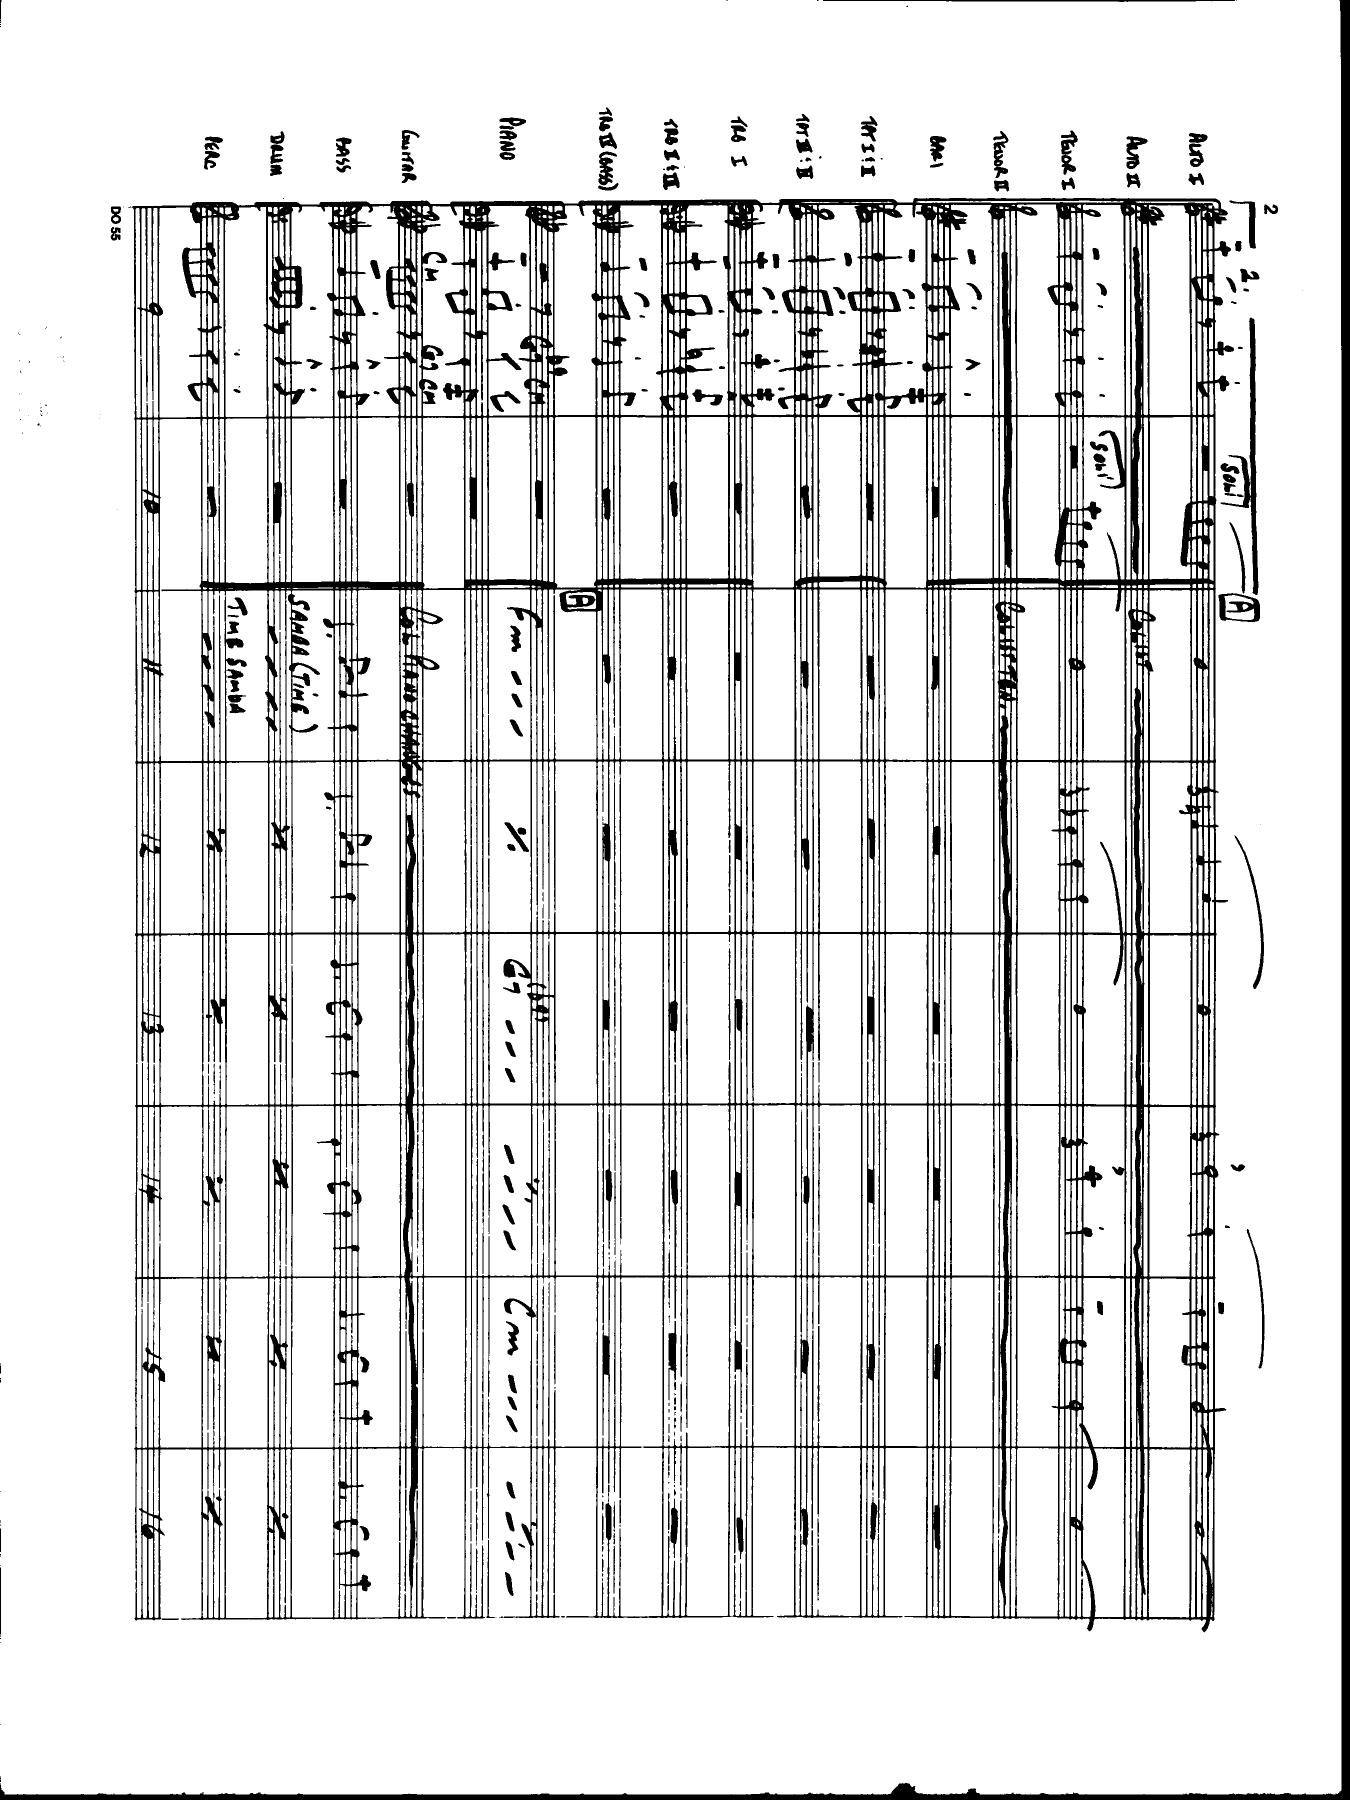 2
2.
ALTO I
SOLI
A
ALTO II
COL 1ST
TENOR I
SOLI
TENOR II
COL 1ST TEN.
BARI
TPT I & II
TRB I
TRB IV (BASS)
A
PIANO
G7 CM
Fm
G7(b9)
Cm
GUITAR
CM G7 CM
COL PIANO CHANGES
BASS
DRUM
SAMBA (TIME)
PERC
TIME SAMBA
9 10 11 12 13 14 15 16
DO 55